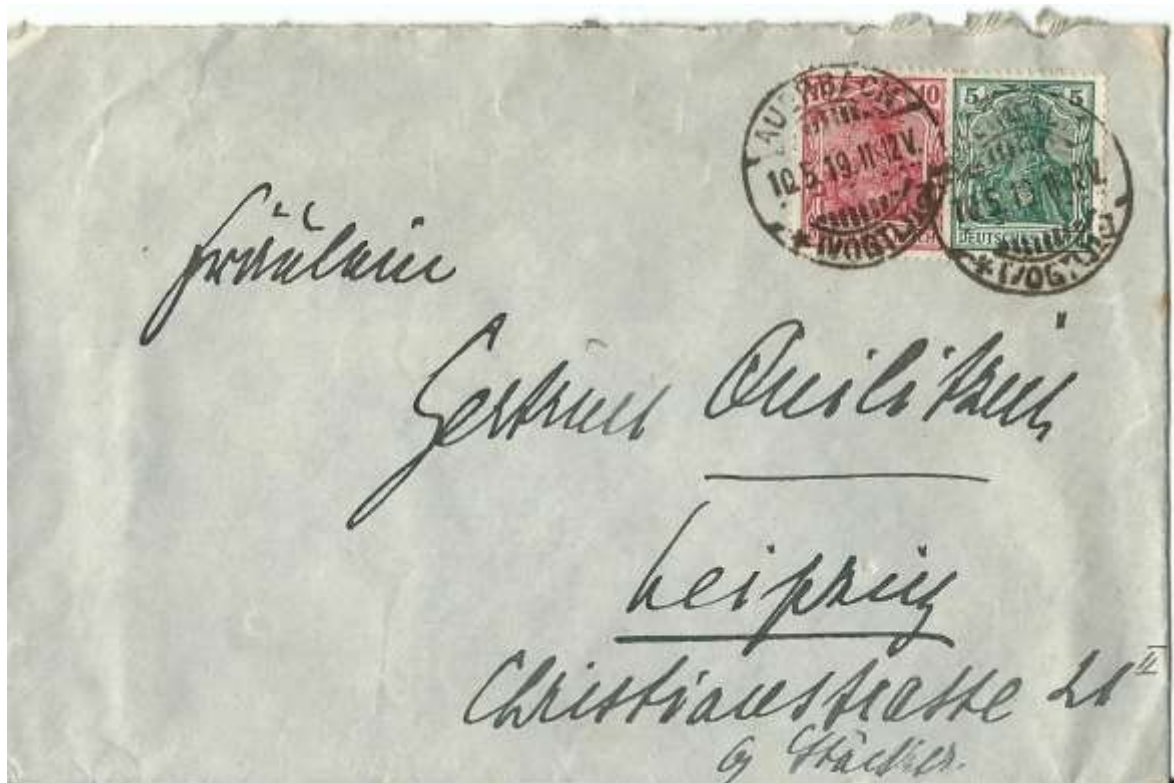 AUERBACH
10.5.19.11-12V.
* (VOGTL.)
10
5 5
DEUTSCHES REICH
Fräulein
Gertrud
Leipzig
Christianstrasse 21 II